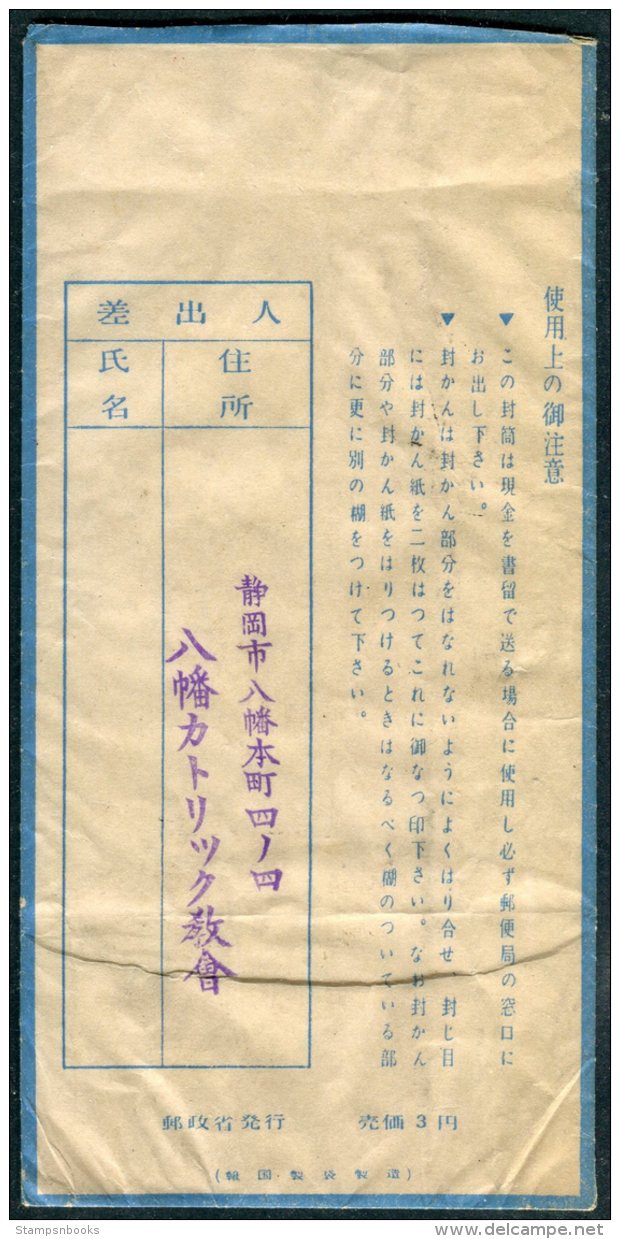 使用上の御注意
▼この封筒は現金を書留で送る場合に使用し必ず郵便局の窓口に
お出し下さい。
▼封かんは封かん部分をはなれないようによくはり合せ、封じ目
には封かん紙を二枚はつてこれに御なつ印下さい。なお封かん
部分や封かん紙をはりつけるときはなるべく糊のついている部
分に更に別の糊をつけて下さい。
差出人
住所
氏名
静岡市八幡本町四ノ四
八幡カトリック教會
郵政省発行
売価3円
(報国製袋製造)
Stampsnbooks
delcampe.net